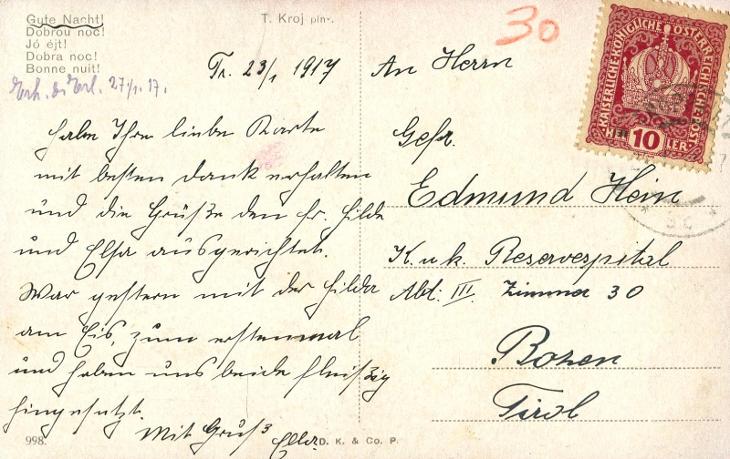 Gute Nacht!
Dobrou noc!
Jó éjt!
Dobra noc!
Bonne nuit!
T. Kroj pinx.
30
27/1. 17.
Tr. 23/1 1917
habe Ihre liebe Karte
mit besten Dank erhalten
und die Grüße den Fr. Hilde
und Elsa ausgerichtet.
War gestern mit der Hilda
am Eis, zum erstenmal
und haben uns beide fleißig
hingesetzt.
Mit Gruß Ella
998.
D. K. & Co. P.
An Herrn
Gefr.
Edmund Hein
K. u. k. Reservespital
Abt. III. Zimmer 30
Bozen
Tirol
KAISERLICHE KÖNIGLICHE ÖSTERREICHISCHE POST
HELLER
10